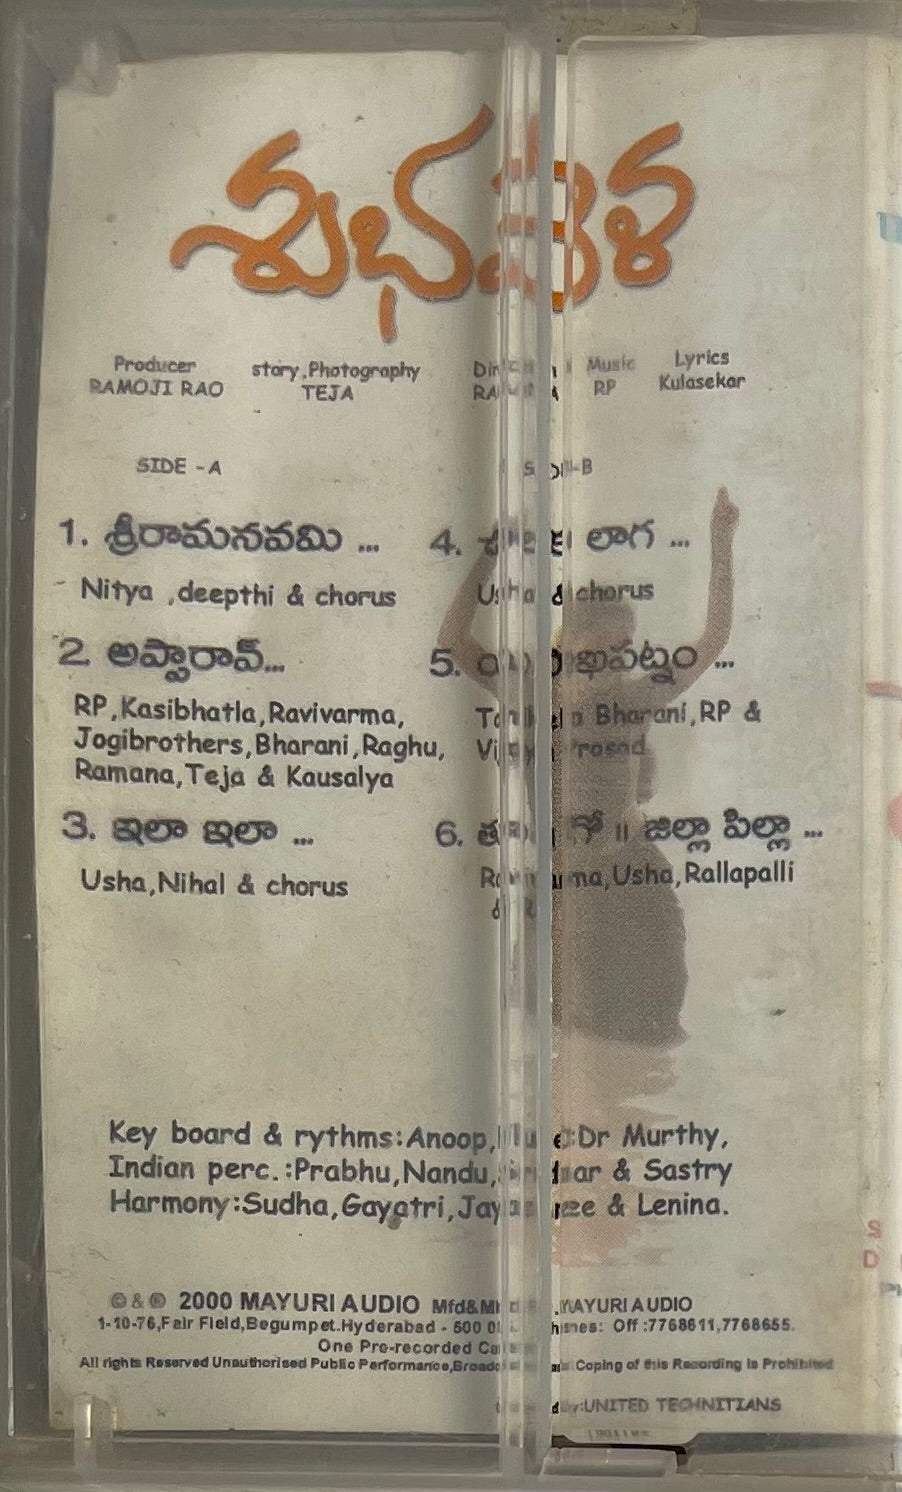 Producer
RAMOJI RAO
story,Photography
TEJA
Music
RP
Lyrics
Kulasekar
SIDE - A
1. శ్రీరామనవమి ...
Nitya ,deepthi & chorus
2. అప్పారావ్...
RP,Kasibhatla,Ravivarma,
Jogibrothers,Bharani,Raghu,
Ramana,Teja & Kausalya
3. ఇలా ఇలా ...
Usha,Nihal & chorus
4. లాగ ...
Usha & chorus
5.
Bharani,RP &
6. జిల్లా పిల్లా ...
Usha,Rallapalli
Key board & rythms:Anoop, Dr Murthy,
Indian perc.:Prabhu,Nandu, & Sastry
Harmony:Sudha,Gayatri, & Lenina.
©&℗ 2000 MAYURI AUDIO MAYURI AUDIO
1-10-76,Fair Field,Begumpet.Hyderabad - Off :7768611,7768655.
One Pre-recorded
All rights Reserved Unauthorised Public Performance, Coping of this Recording is Prohibited
UNITED TECHNITIANS